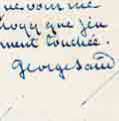 que vous me
que j'en
ment touchée.
George Sand